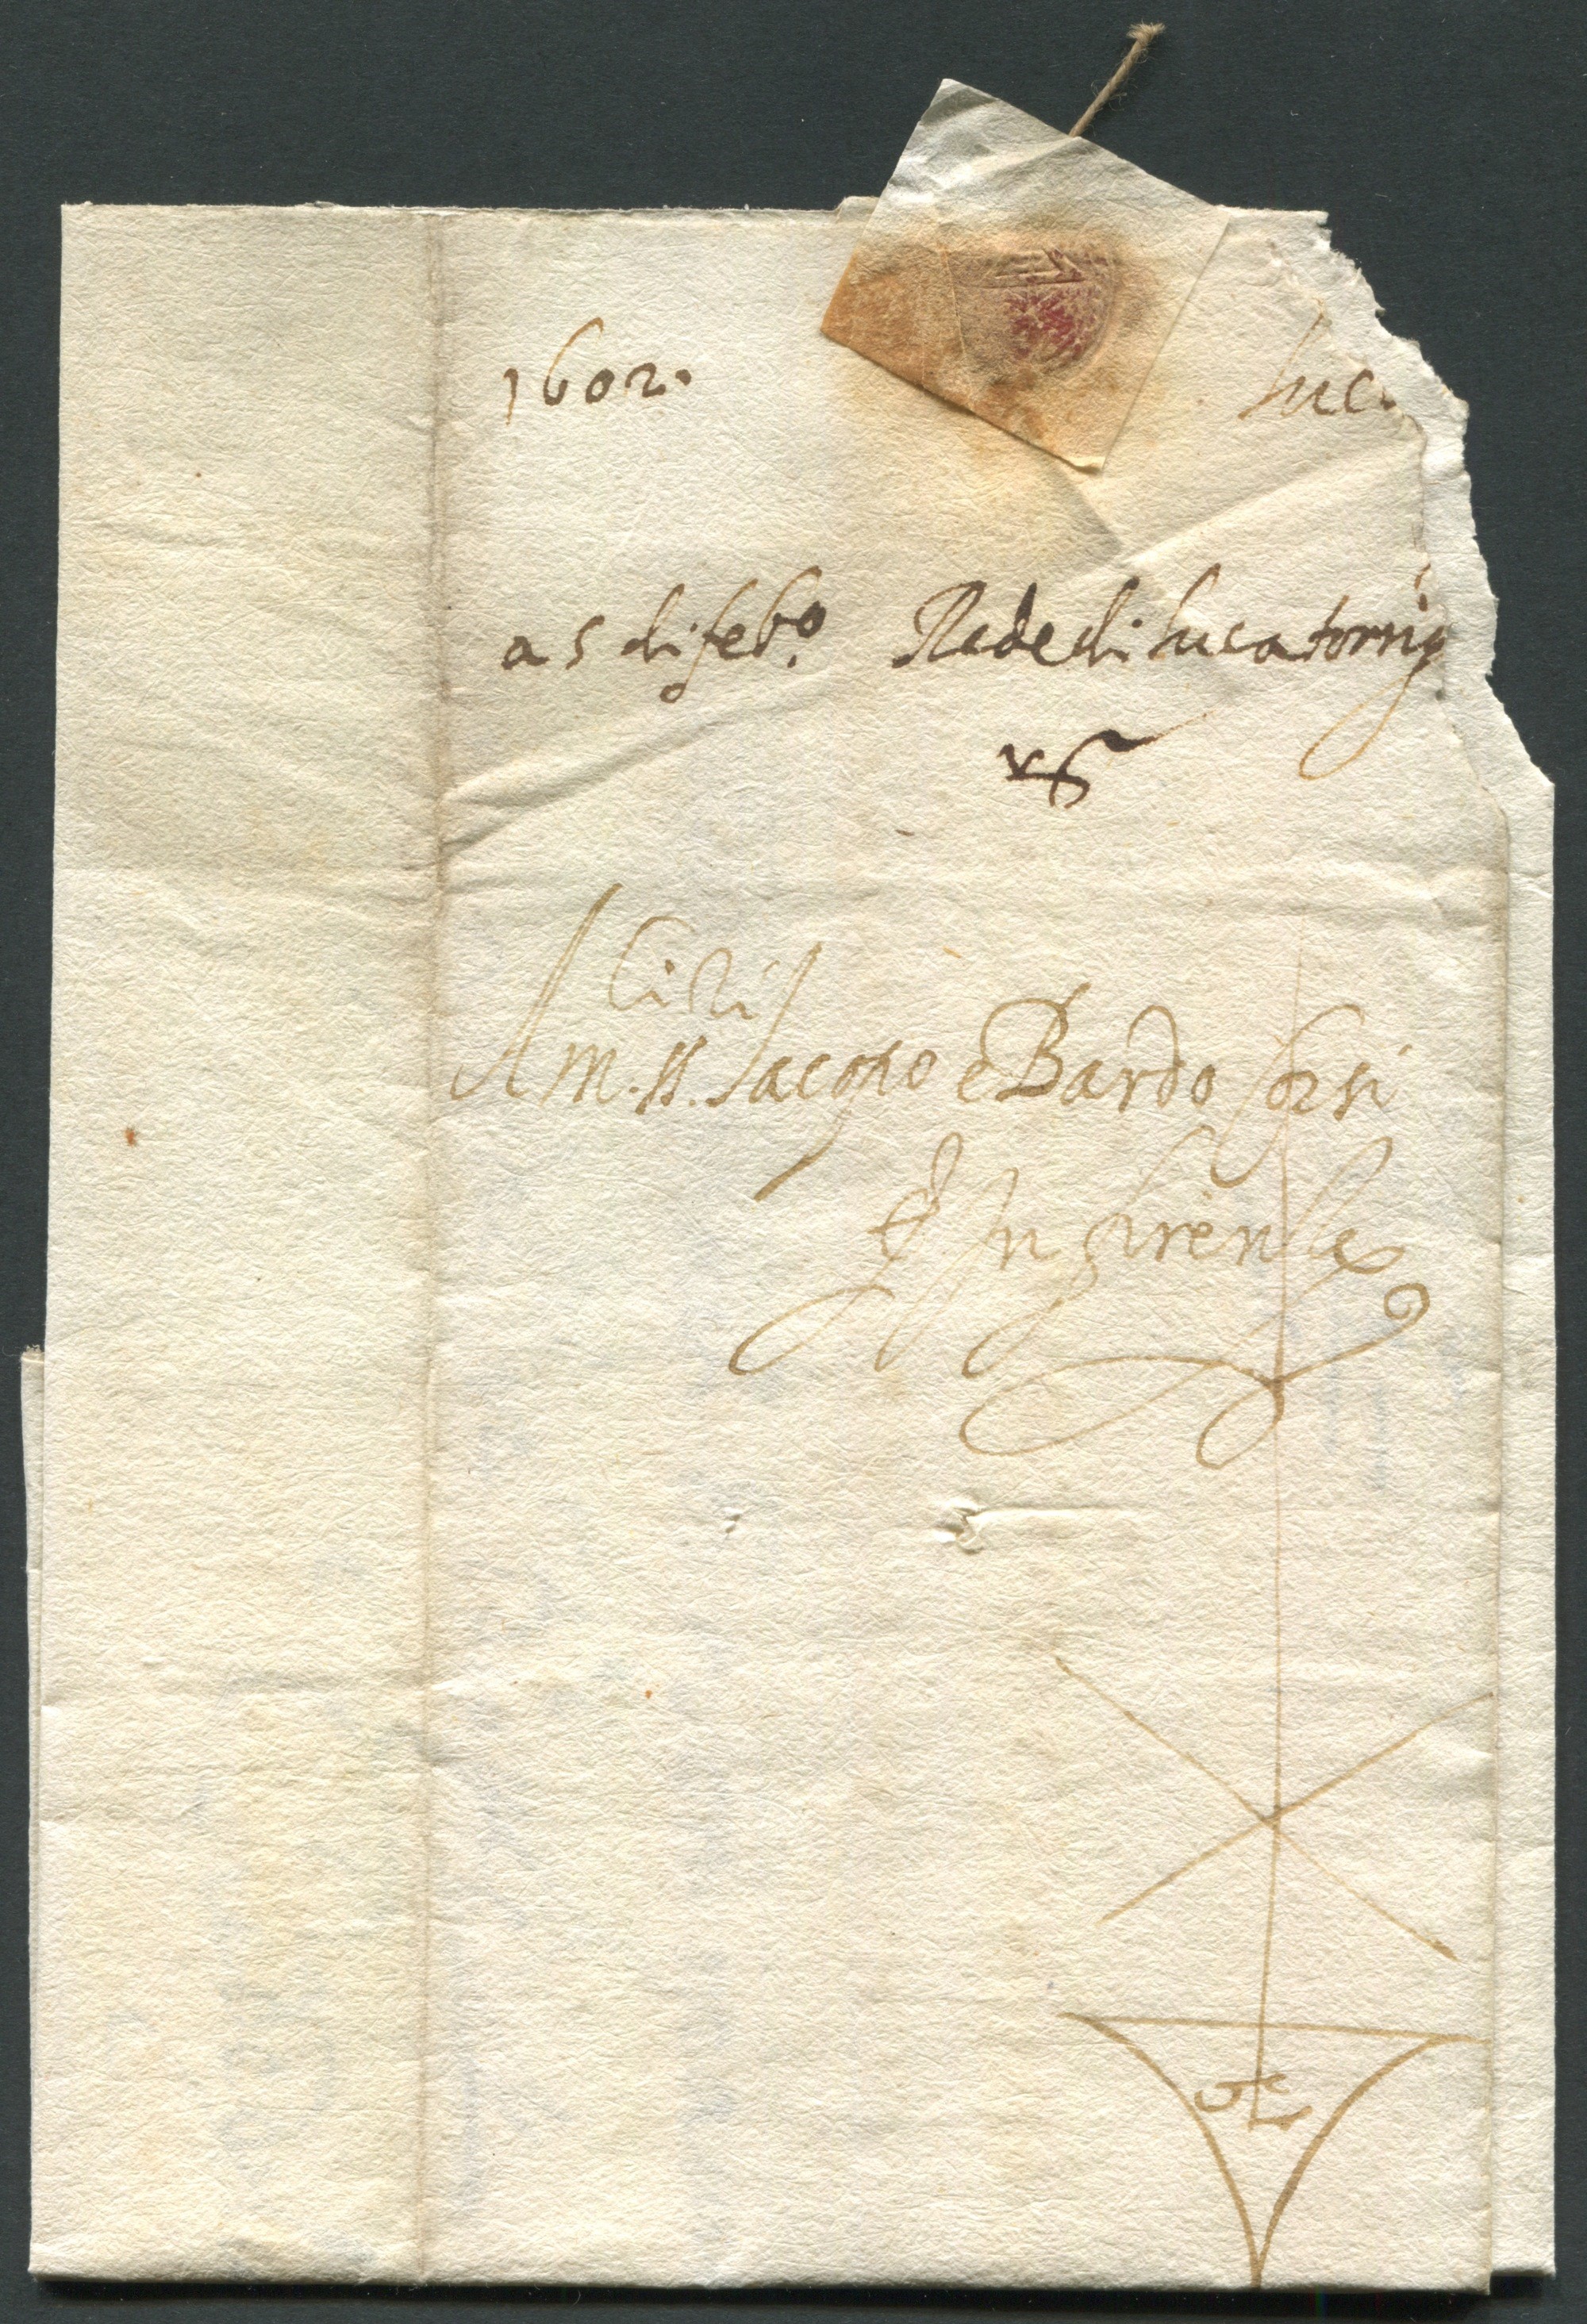 1602. Luc
a 5 di feb.o Rede di luca torrig
Ciri
A m. ss. Jacopo e Bardo Corsi
In firenze